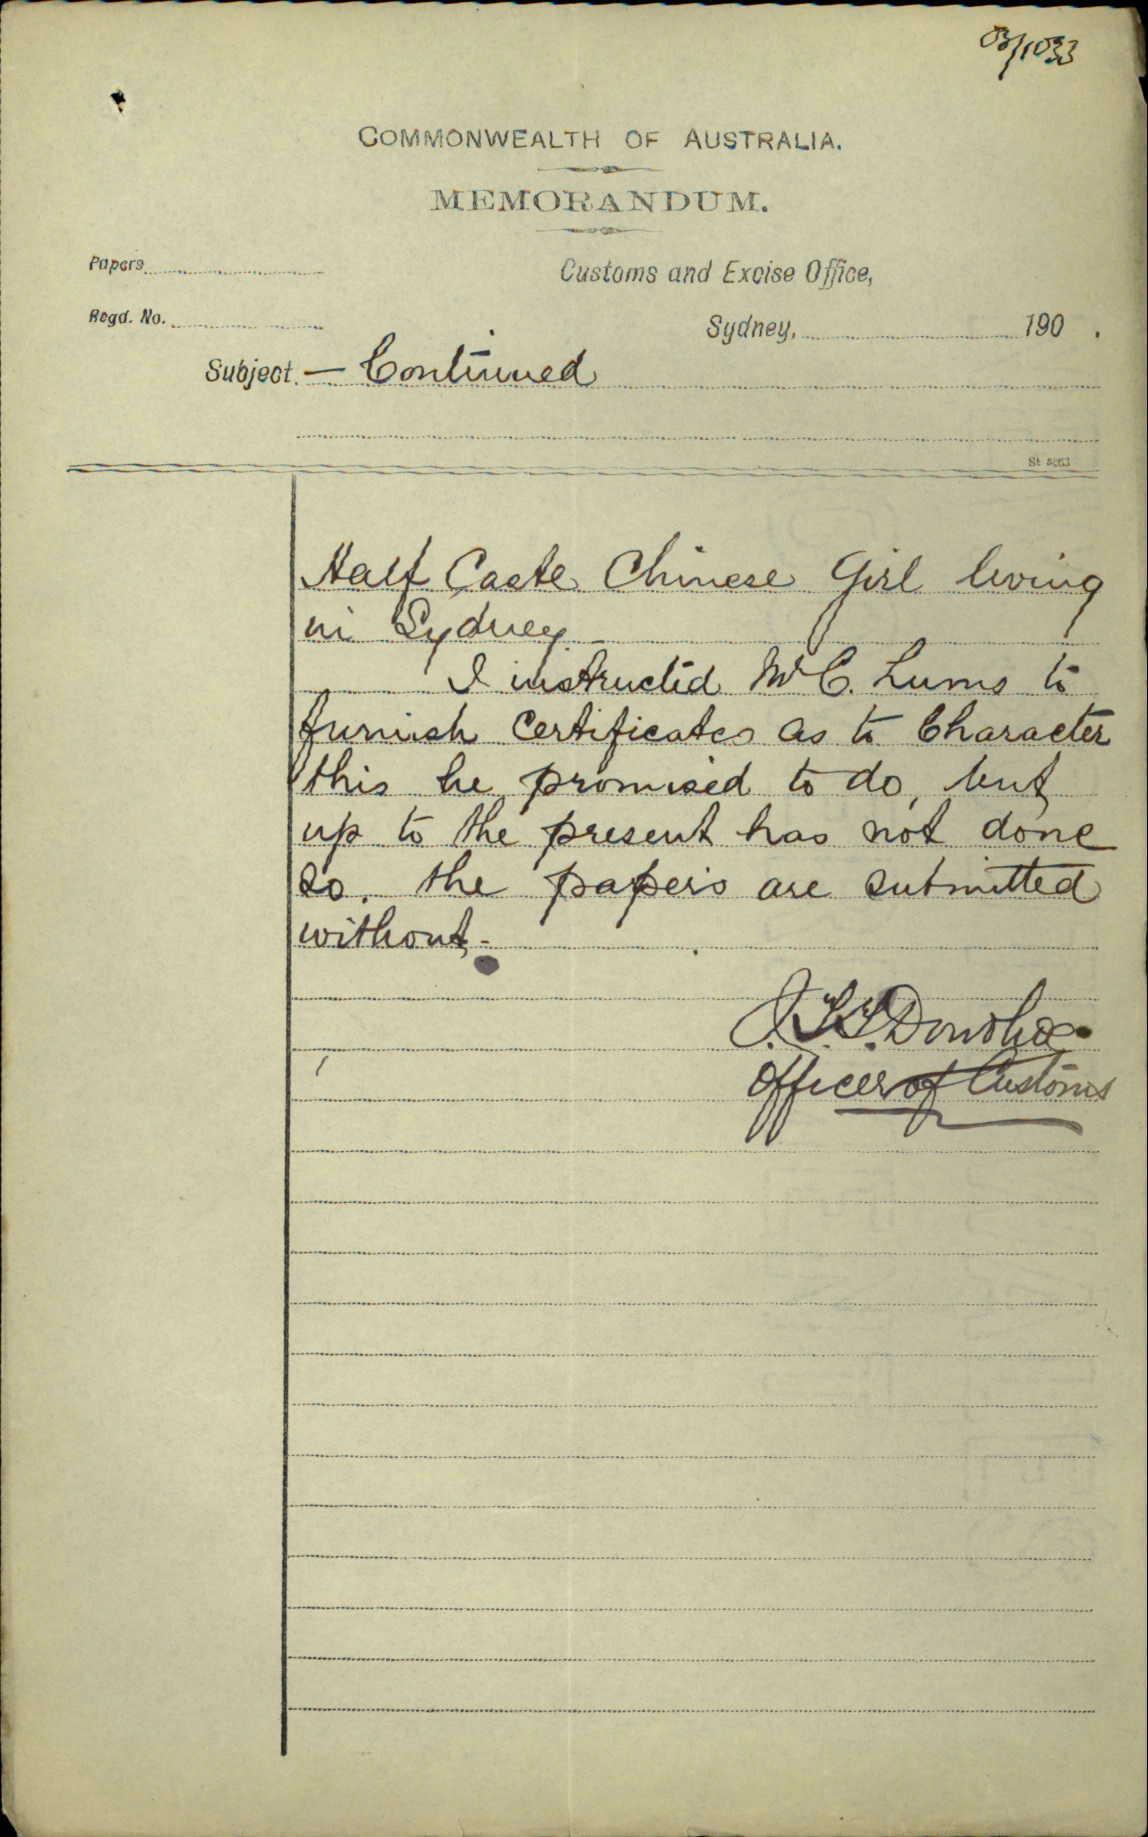 03/1033
COMMONWEALTH OF AUSTRALIA.
MEMORANDUM.
Papers
Customs and Excise Office,
Regd. No.
Sydney, 190 .
Subject. — Continued
St 5263
Half Caste Chinese Girl living
in Sydney.
I instructed Mr C. Lums to
furnish Certificates as to Character
this he promised to do, but
up to the present has not done
so. the papers are submitted
without.-
J.T.T. Donohoe
Officer of Customs